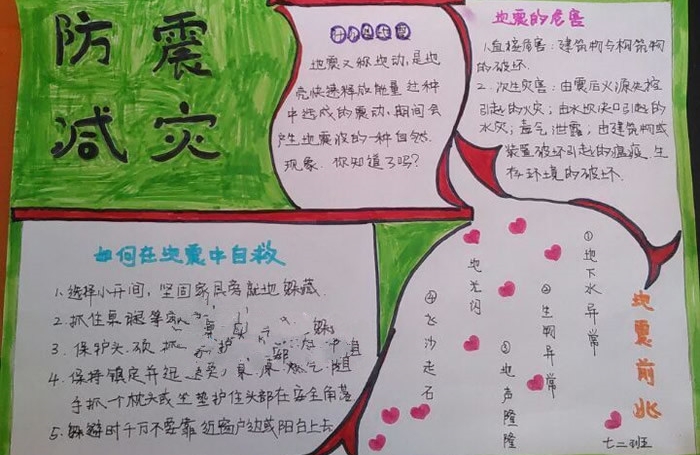 防震
减灾
什么是地震
地震又称地动，是地
壳快速释放能量过种
中造成的震动，期间会
产生地震波的一种自然
现象．你知道了吗？
地震的危害
1．直接危害：建筑物与构筑物
的破坏．
2．次生灾害：由震后火源失控
引起的火灾；由水坝决口引起的
水灾；毒气泄露；由建筑物或
装置破坏引起的瘟疫 生
存环境的破坏．
如何在地震中自救
1．选择小开间，坚固家具旁就地躲藏．
2．抓住桌腿等
3．保护头、颈
4．保持镇定并迅
手抓一个枕头或坐垫护住头部在安全角落
5．躲避时千万不要靠近窗户边或阳台上去
地震前兆
①地下水异常
②生物异常
③地声隆隆
地光闪
④飞沙走石
七二班